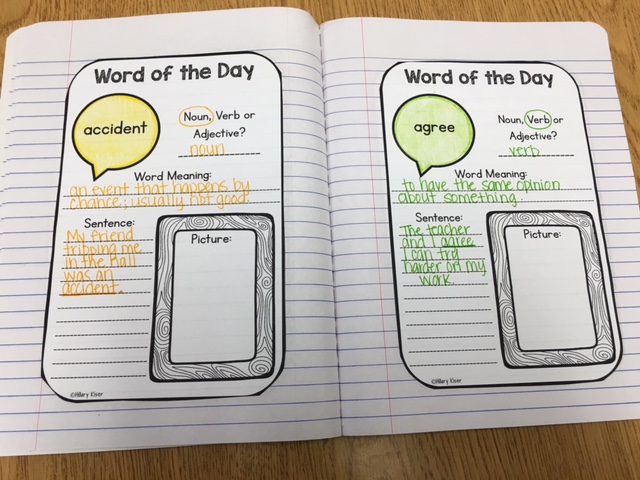 Word of the Day
accident
Noun, Verb or
Adjective?
noun
Word Meaning:
an event that happens by
chance; usually not good.
Sentence:
My friend
tripping me
in the hall
was an
accident.
Picture:
©Hillary Kiser
Word of the Day
agree
Noun, Verb or
Adjective?
verb
Word Meaning:
to have the same opinion
about something.
Sentence:
The teacher
and I agree
I can try
harder on my
work.
Picture:
©Hillary Kiser